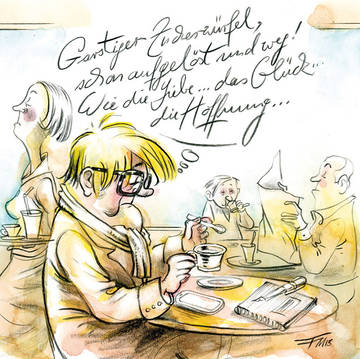 Garstiger Zuckerwürfel,
schon aufgelöst und weg!
Wie die Liebe... das Glück...
die Hoffnung...